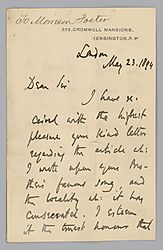 To Morrison Foster
275, CROMWELL MANSIONS,
KENSINGTON, S.W.
London
May 23. 1894
Dear Sir
I have re-
ceived with the highest
pleasure your kind letter
regarding the article
I wrote upon your Bro-
thers famous song and
the locality it was
consecrated. I esteem
it the truest honour that